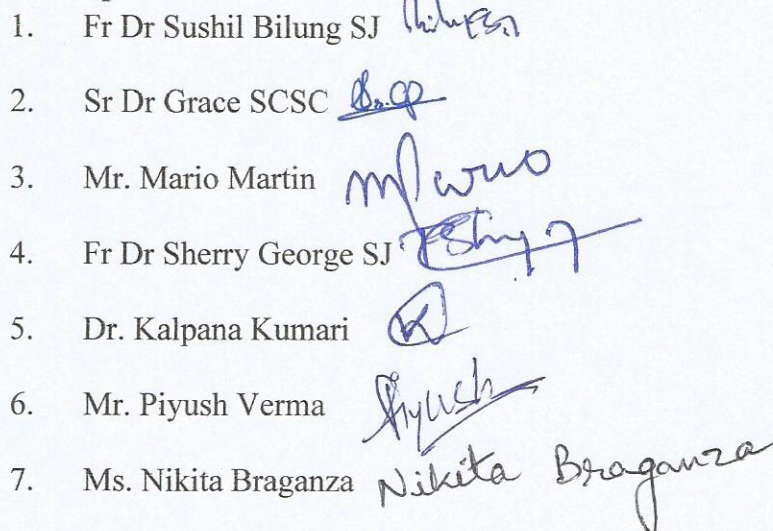 1. Fr Dr Sushil Bilung SJ
2. Sr Dr Grace SCSC
3. Mr. Mario Martin Mario
4. Fr Dr Sherry George SJ
5. Dr. Kalpana Kumari K
6. Mr. Piyush Verma Piyush
7. Ms. Nikita Braganza Nikita Braganza